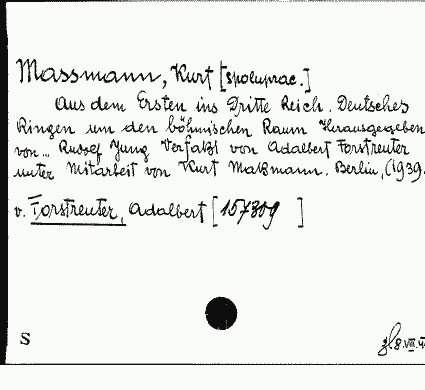 Massmann, Kurt [spoluprac.]
Aus dem Ersten ins Dritte Reich. Deutsches
Ringen um den böhmischen Raum Herausgegeben
von... Rudolf Jung Verfaßt von Adalbert Forstreuter
unter Mitarbeit von Kurt Maßmann. Berlin, (1939.
v. Forstreuter, Adalbert [157309 ]
S